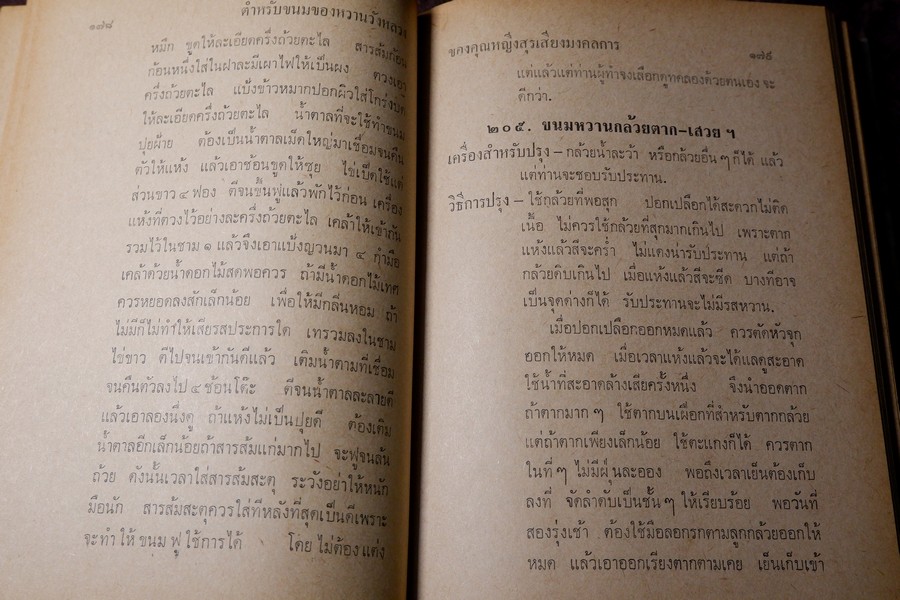 ๑๗๘
ตำหรับขนมของหวานวังหลวง
หมึก ขูดให้ละเอียดครึ่งถ้วยตะไล สารส้มก้อน
ก้อนหนึ่งใส่ในฝาละมีเผาไฟให้เป็นผง ตวงเอา
ครึ่งถ้วยตะไล แป้งข้าวหมากปอกผิวใส่โกร่งบด
ให้ละเอียดครึ่งถ้วยตะไล น้ำตาลที่จะใช้ทำขนม
ปุยฝ้าย ต้องเป็นน้ำตาลเม็ดใหญ่มาเชื่อมจนคืน
ตัวให้แห้ง แล้วเอาช้อนขูดให้ซุย ไข่เป็ดใช้แต่
ส่วนขาว ๔ ฟอง ตีจนขึ้นฟูแล้วพักไว้ก่อน เครื่อง
แห้งที่ตวงไว้อย่างละครึ่งถ้วยตะไล เคล้าให้เข้ากัน
รวมไว้ในชาม ๑ แล้วจึงเอาแป้งญวนมา ๔ กำมือ
เคล้าด้วยน้ำดอกไม้สดพอควร ถ้ามีน้ำดอกไม้เทศ
ควรหยอดลงสักเล็กน้อย เพื่อให้มีกลิ่นหอม ถ้า
ไม่มีก็ไม่ทำให้เสียรสประการใด เทรวมลงในชาม
ไข่ขาว ตีไปจนเข้ากันดีแล้ว เติมน้ำตามที่เชื่อม
จนคืนตัวลงไป ๔ ช้อนโต๊ะ ตีจนน้ำตาลละลายดี
แล้วเอาลองนึ่งดู ถ้าแห้งไม่เป็นปุยดี ต้องเติม
น้ำตาลอีกเล็กน้อยถ้าสารส้มแก่มากไป จะฟูจนล้น
ถ้วย ดังนั้นเวลาใส่สารส้มสะตุ ระวังอย่าให้หนัก
มือนัก สารส้มสะตุควรใส่ทีหลังที่สุดเป็นดีเพราะ
จะทำให้ขนมฟูใช้การได้ โดยไม่ต้องแต่ง
ของคุณหญิงสุรเสียงมงคลการ
๑๗๙
แต่แล้วแต่ท่านผู้ทำจงเลือกดูทดลองด้วยตนเอง จะ
ดีกว่า.
๒๐๕. ขนมหวานกล้วยตาก–เสวย ฯ
เครื่องสำหรับปรุง – กล้วยน้ำละว้า หรือกล้วยอื่น ๆ ก็ได้ แล้ว
แต่ท่านจะชอบรับประทาน.
วิธีการปรุง – ใช้กล้วยที่พอสุก ปอกเปลือกได้สะดวกไม่ติด
เนื้อ ไม่ควรใช้กล้วยที่สุกมากเกินไป เพราะตาก
แห้งแล้วสีจะคร่ำ ไม่แดงน่ารับประทาน แต่ถ้า
กล้วยดิบเกินไป เมื่อแห้งแล้วสีจะซีด บางทีอาจ
เป็นจุดด่างก็ได้ รับประทานจะไม่มีรสหวาน.
เมื่อปอกเปลือกออกหมดแล้ว ควรตัดหัวจุก
ออกให้หมด เมื่อเวลาแห้งแล้วจะได้แลดูสะอาด
ใช้น้ำที่สะอาดล้างเสียครั้งหนึ่ง จึงนำออกตาก
ถ้าตากมาก ๆ ใช้ตากบนเผือกที่สำหรับตากกล้วย
แต่ถ้าตากเพียงเล็กน้อย ใช้ตะแกงก็ได้ ควรตาก
ในที่ ๆ ไม่มีฝุ่นละออง พอถึงเวลาเย็นต้องเก็บ
ลงที่ จัดลำดับเป็นชั้น ๆ ให้เรียบร้อย พอวันที่
สองรุ่งเช้า ต้องใช้มือลอกรกตามลูกกล้วยออกให้
หมด แล้วเอาออกเรียงตากตามเคย เย็นเก็บเข้า